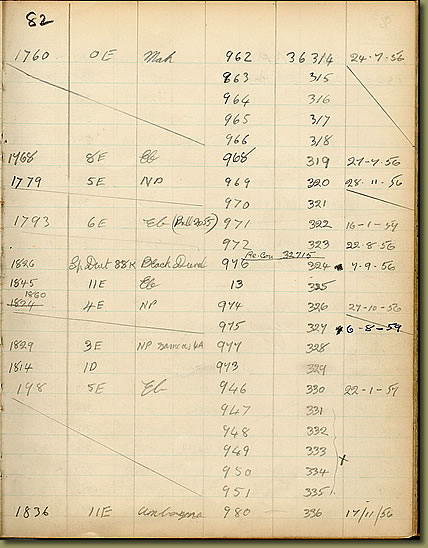 82
1760 0E Mah 962 36 314 24-7-56
863 315
964 316
965 317
966 318
1768 8E Eb 968 319 27-7-56
1779 5E NP 969 320 28-11-56
970 321
1793 6E Eb (Roll 2055) 971 322 16-1-57
972 323 22-8-56
Re-Con 32715
1826 88K Black 976 324 7-9-56
1845 11E Eb 13 325
1880
1824 4E NP 974 326 27-10-56
975 327 6-8-59
1829 3E NP 4A 977 328
1814 1D 973 329
198 5E Eb 946 330 22-1-57
947 331
948 332
949 333 x
950 334
951 335
1836 11E Amboyna 980 336 17/11/56